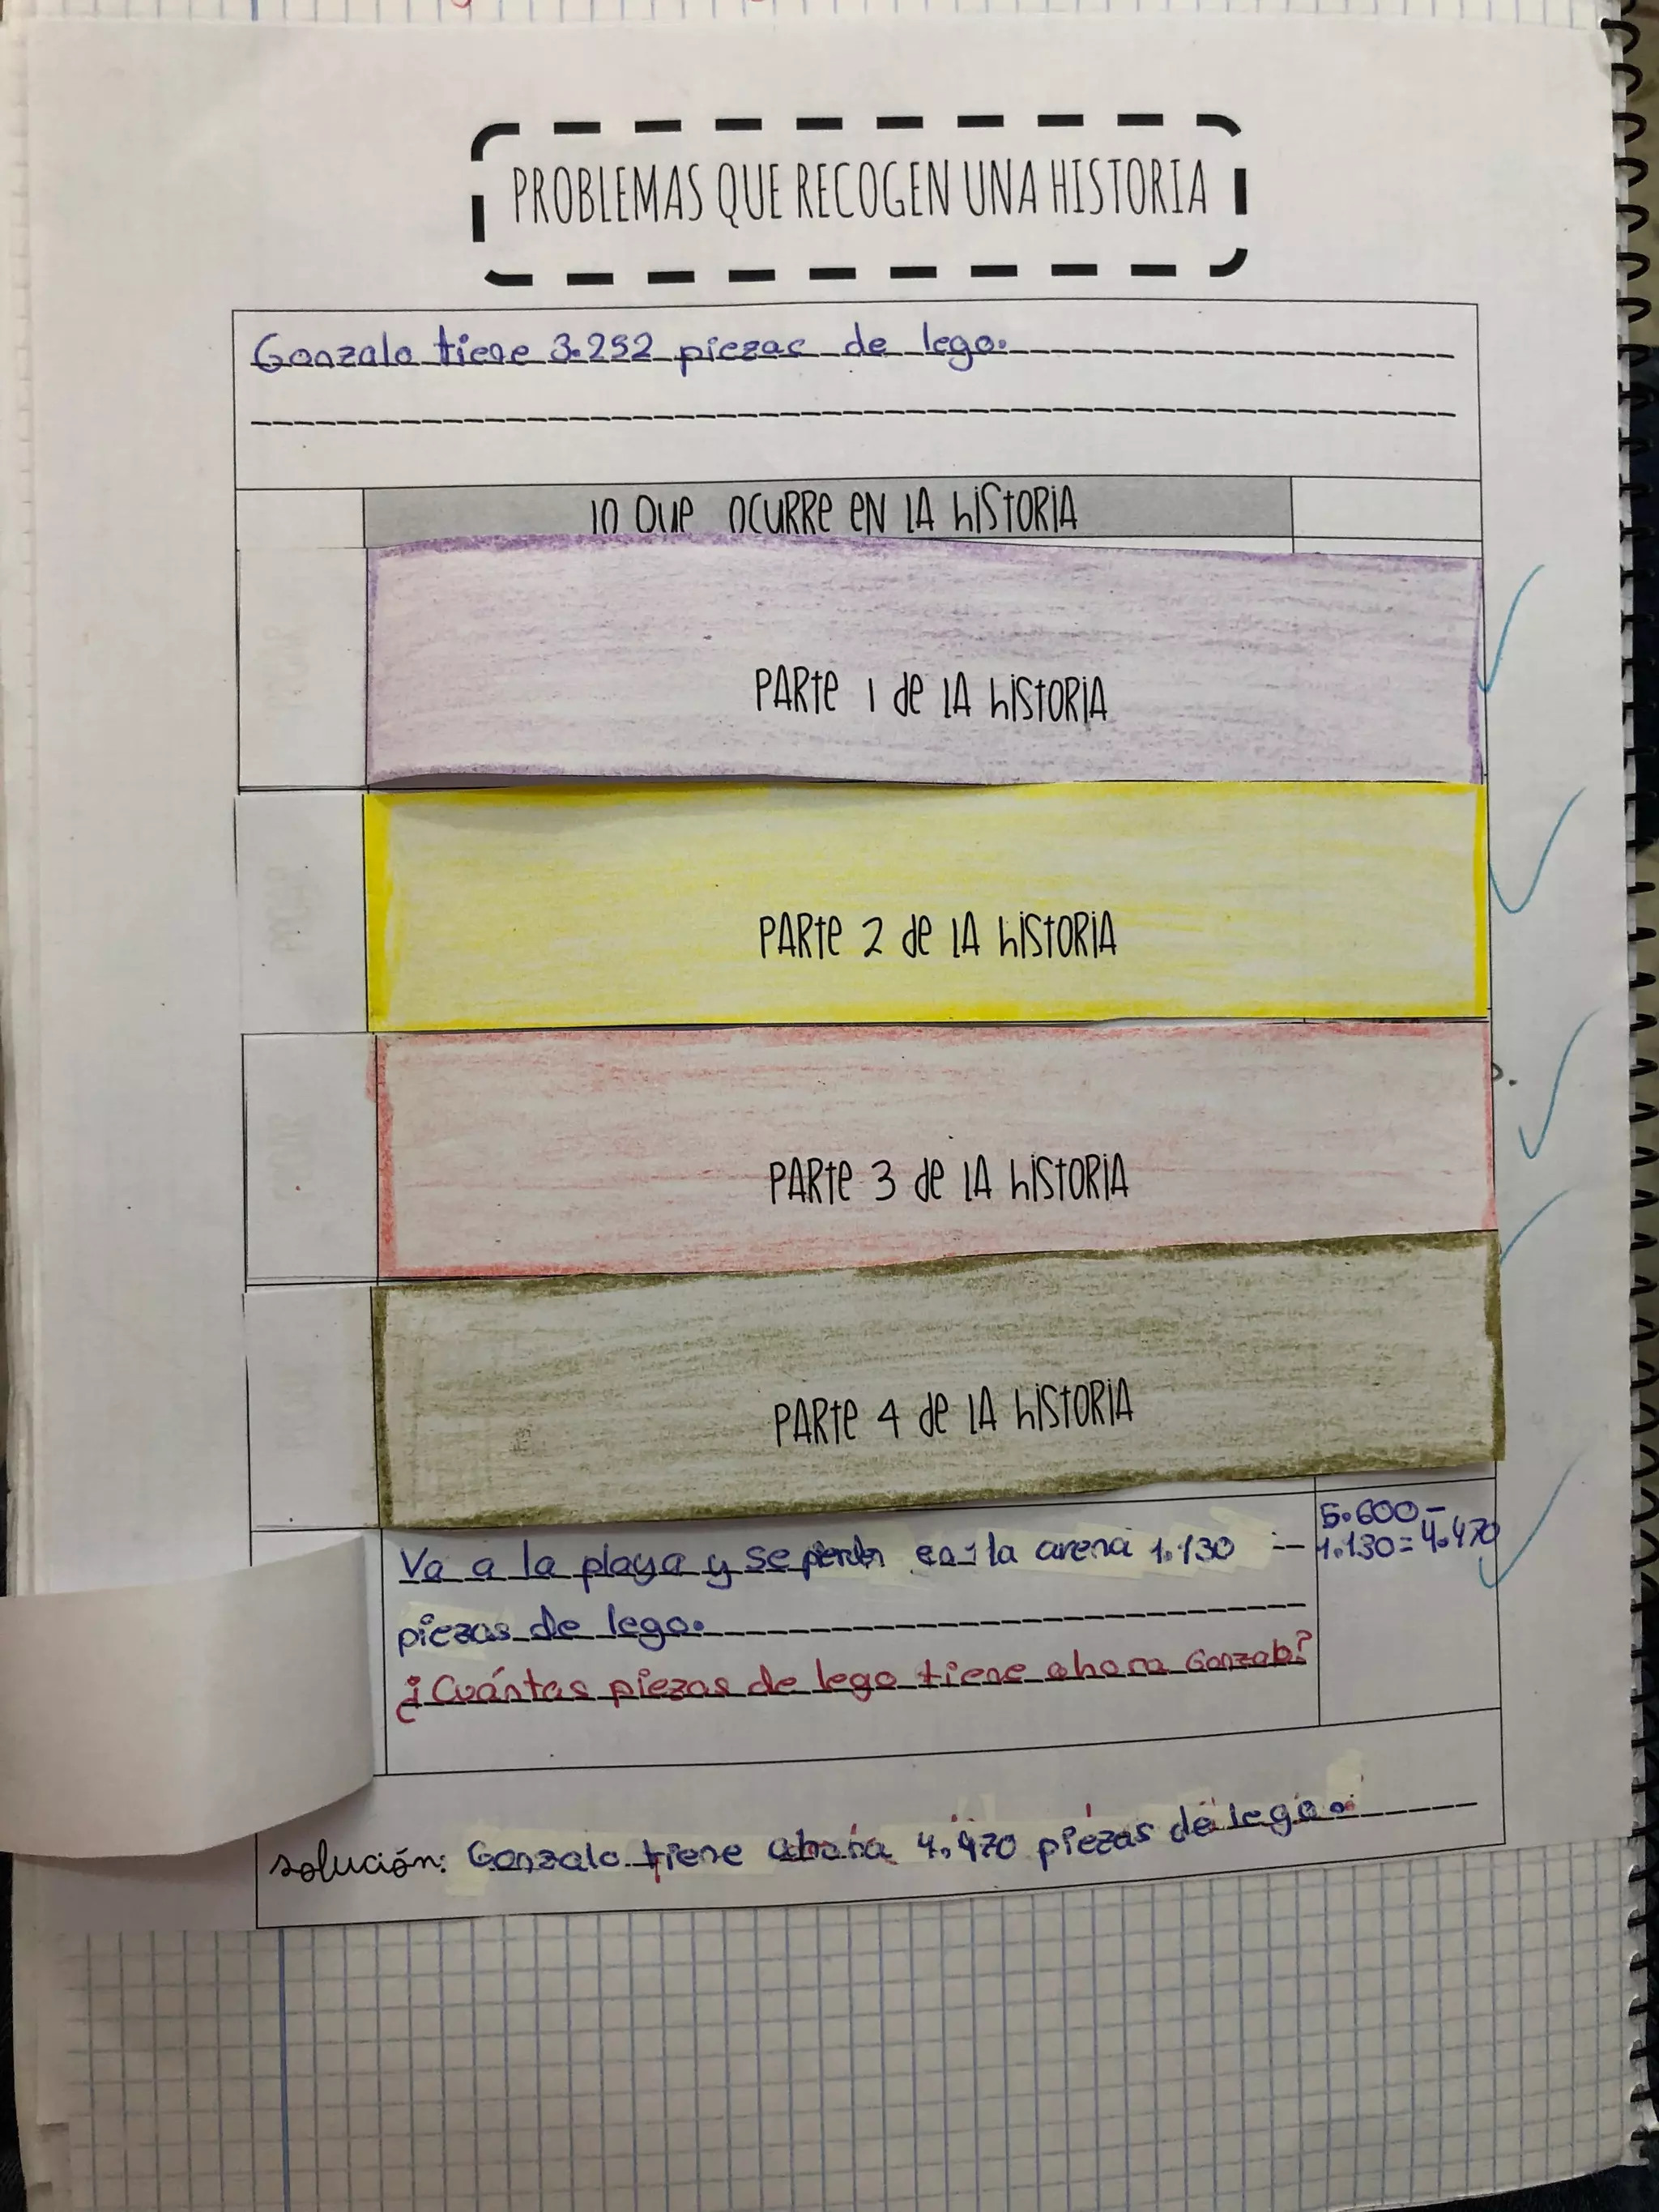 PROBLEMAS QUE RECOGEN UNA HISTORIA
Gonzalo tiene 3.252 piezas de lego.
LO QUE OCURRE EN LA HISTORIA
PARTE 1 DE LA HISTORIA
PARTE 2 DE LA HISTORIA
PARTE 3 DE LA HISTORIA
PARTE 4 DE LA HISTORIA
Va a la playa y se pierden en la arena 1.130
piezas de lego.
¿Cuántas piezas de lego tiene ahora Gonzalo?
5.600-
1.130=4.470
solución: Gonzalo tiene ahora 4.470 piezas de lego.